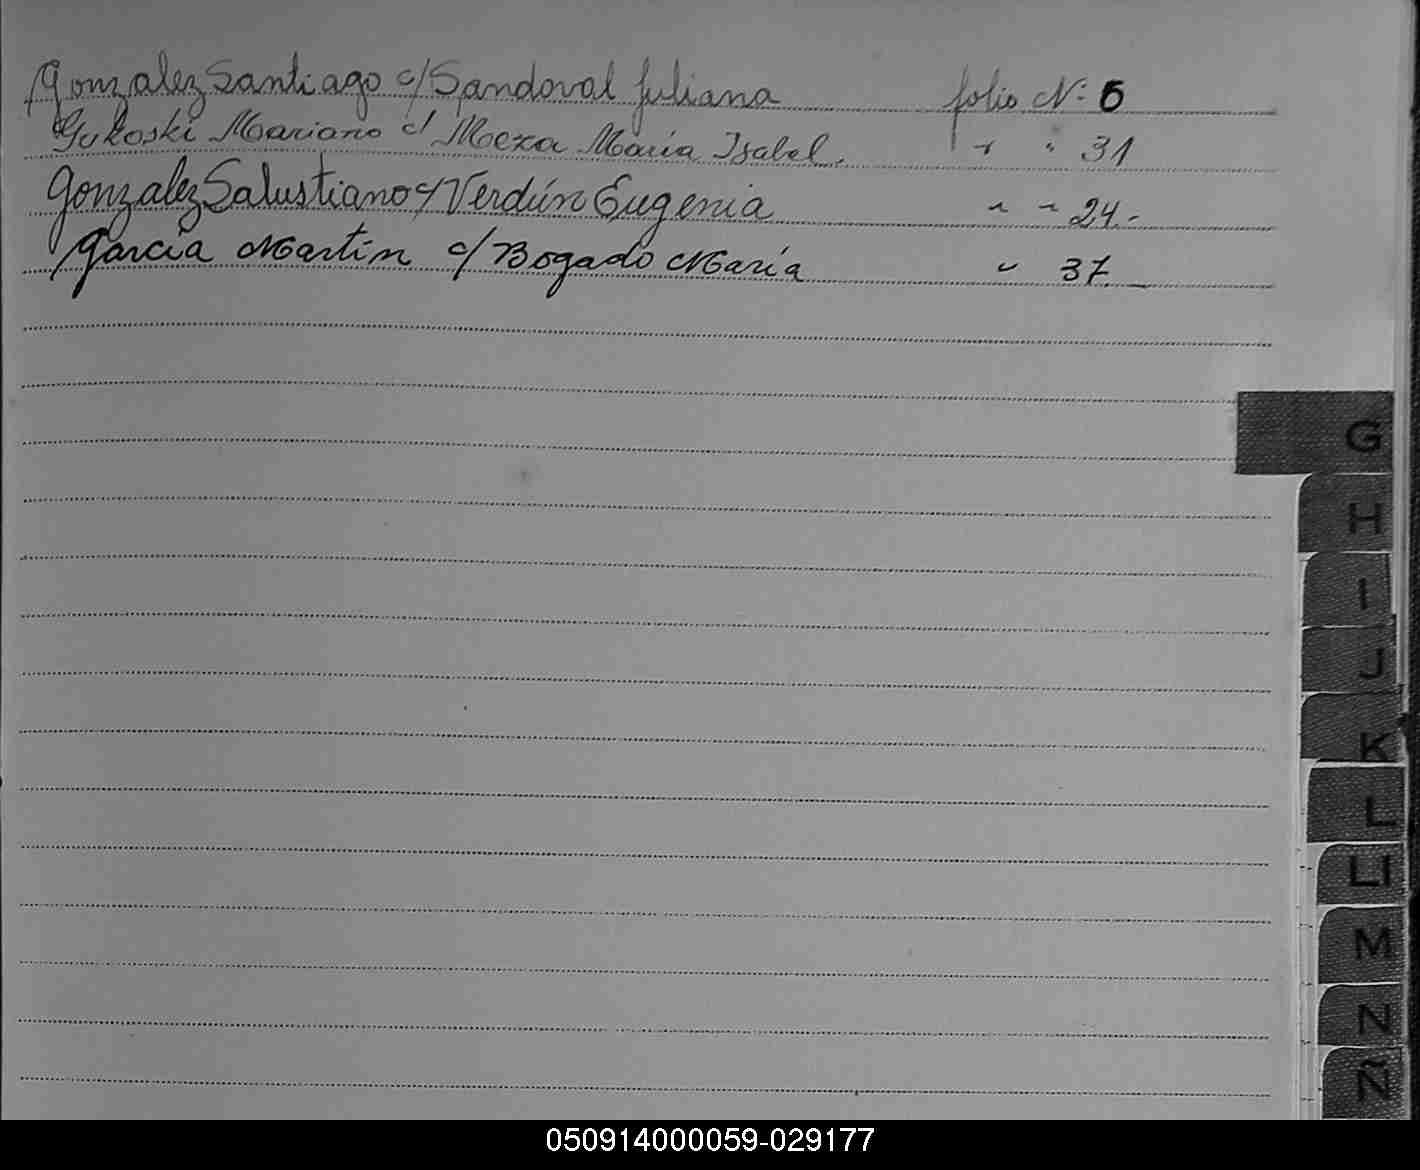 Gonzalez Santiago c/ Sandoval Juliana folio Nº 6
Gukoski Mariano c/ Meza María Isabel. " " 31
Gonzalez Salustiano c/ Verdún Eugenia " " 24.-
Garcia Martín c/ Bogado María " 37
G
H
I
J
K
L
Ll
M
N
Ñ
050914000059-029177